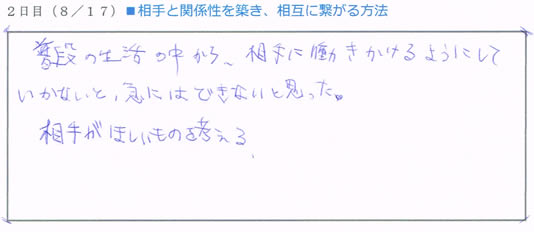 2日目(8/17) ■相手と関係性を築き、相互に繋がる方法
普段の生活の中から、相手に働きかけるようにして
いかないと、急にはできないと思った。
相手がほしいものを考える。